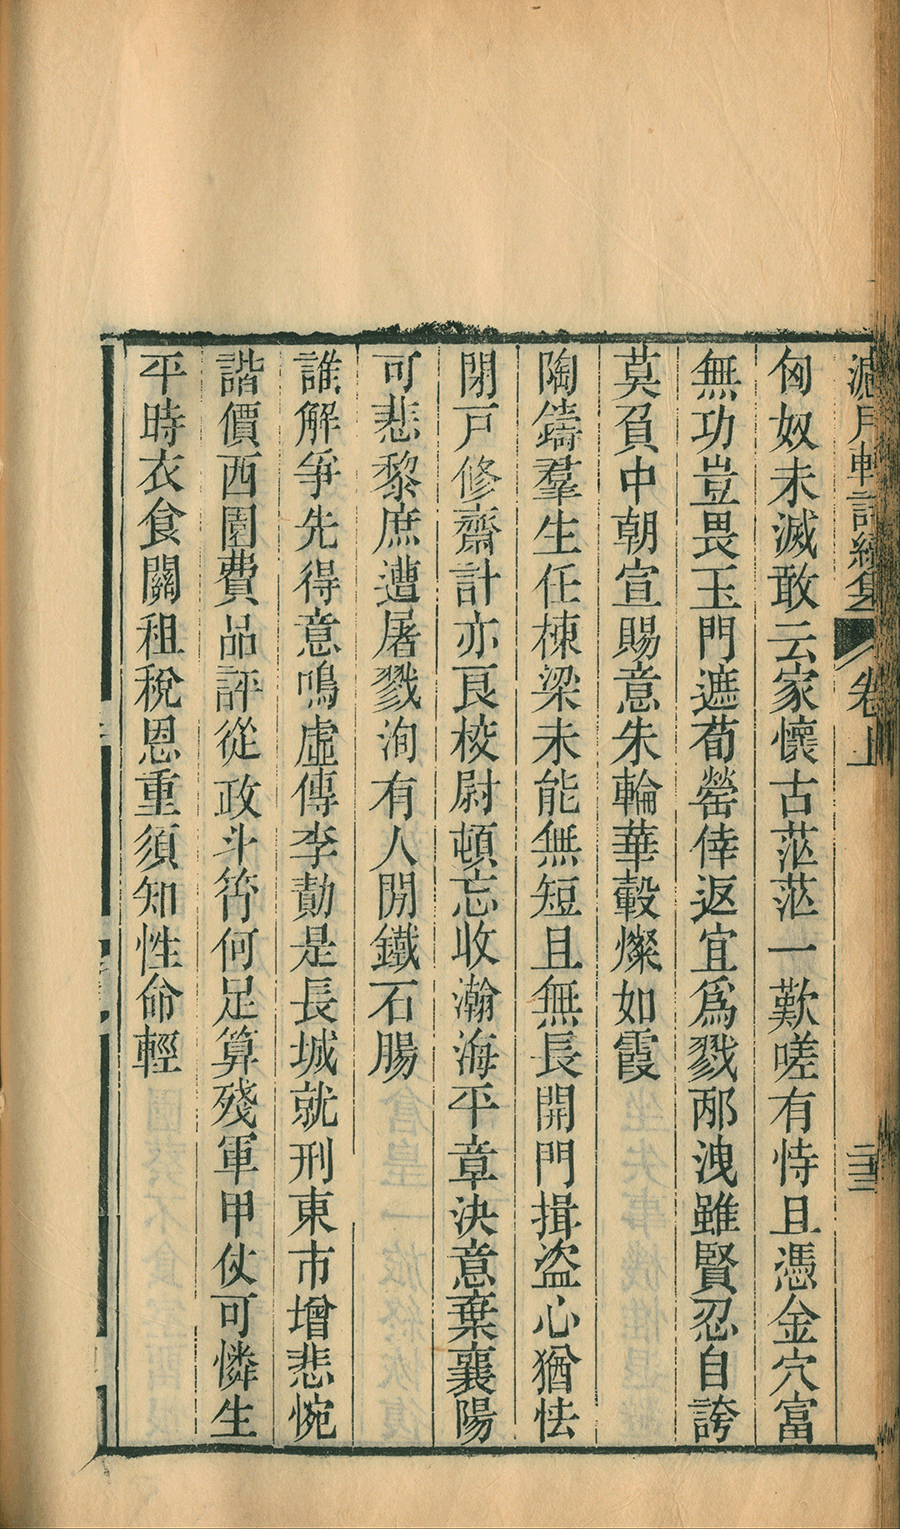 滤月軒詩續集 卷上 二十三
匈奴未滅敢云家懷古茫茫一歎嗟有恃且憑金穴富
無功豈畏玉門遮荀罃倖返宜爲戮郍洩雖賢忍自誇
莫負中朝宣賜意朱輪華轂燦如霞
陶鑄羣生任棟梁未能無短且無長開門揖盜心猶怯
閉戶修齋計亦良校尉頓忘收瀚海平章決意棄襄陽
可悲黎庶遭屠戮洵有人閒鐵石腸
誰解爭先得意鳴虛傳李勣是長城就刑東市增悲惋
諧價西園費品評從政斗筲何足算殘軍甲仗可憐生
平時衣食關租稅恩重須知性命輕